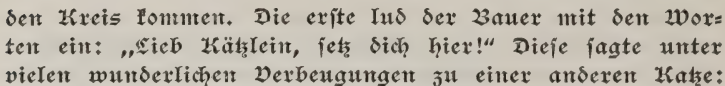 den Kreis kommen. Die erſte lud der Bauer mit den Wor⸗
ten ein: „Lieb Kätzlein, ſetz dich hier!“ Dieſe ſagte unter
vielen wunderlichen Verbeugungen zu einer anderen Katze: